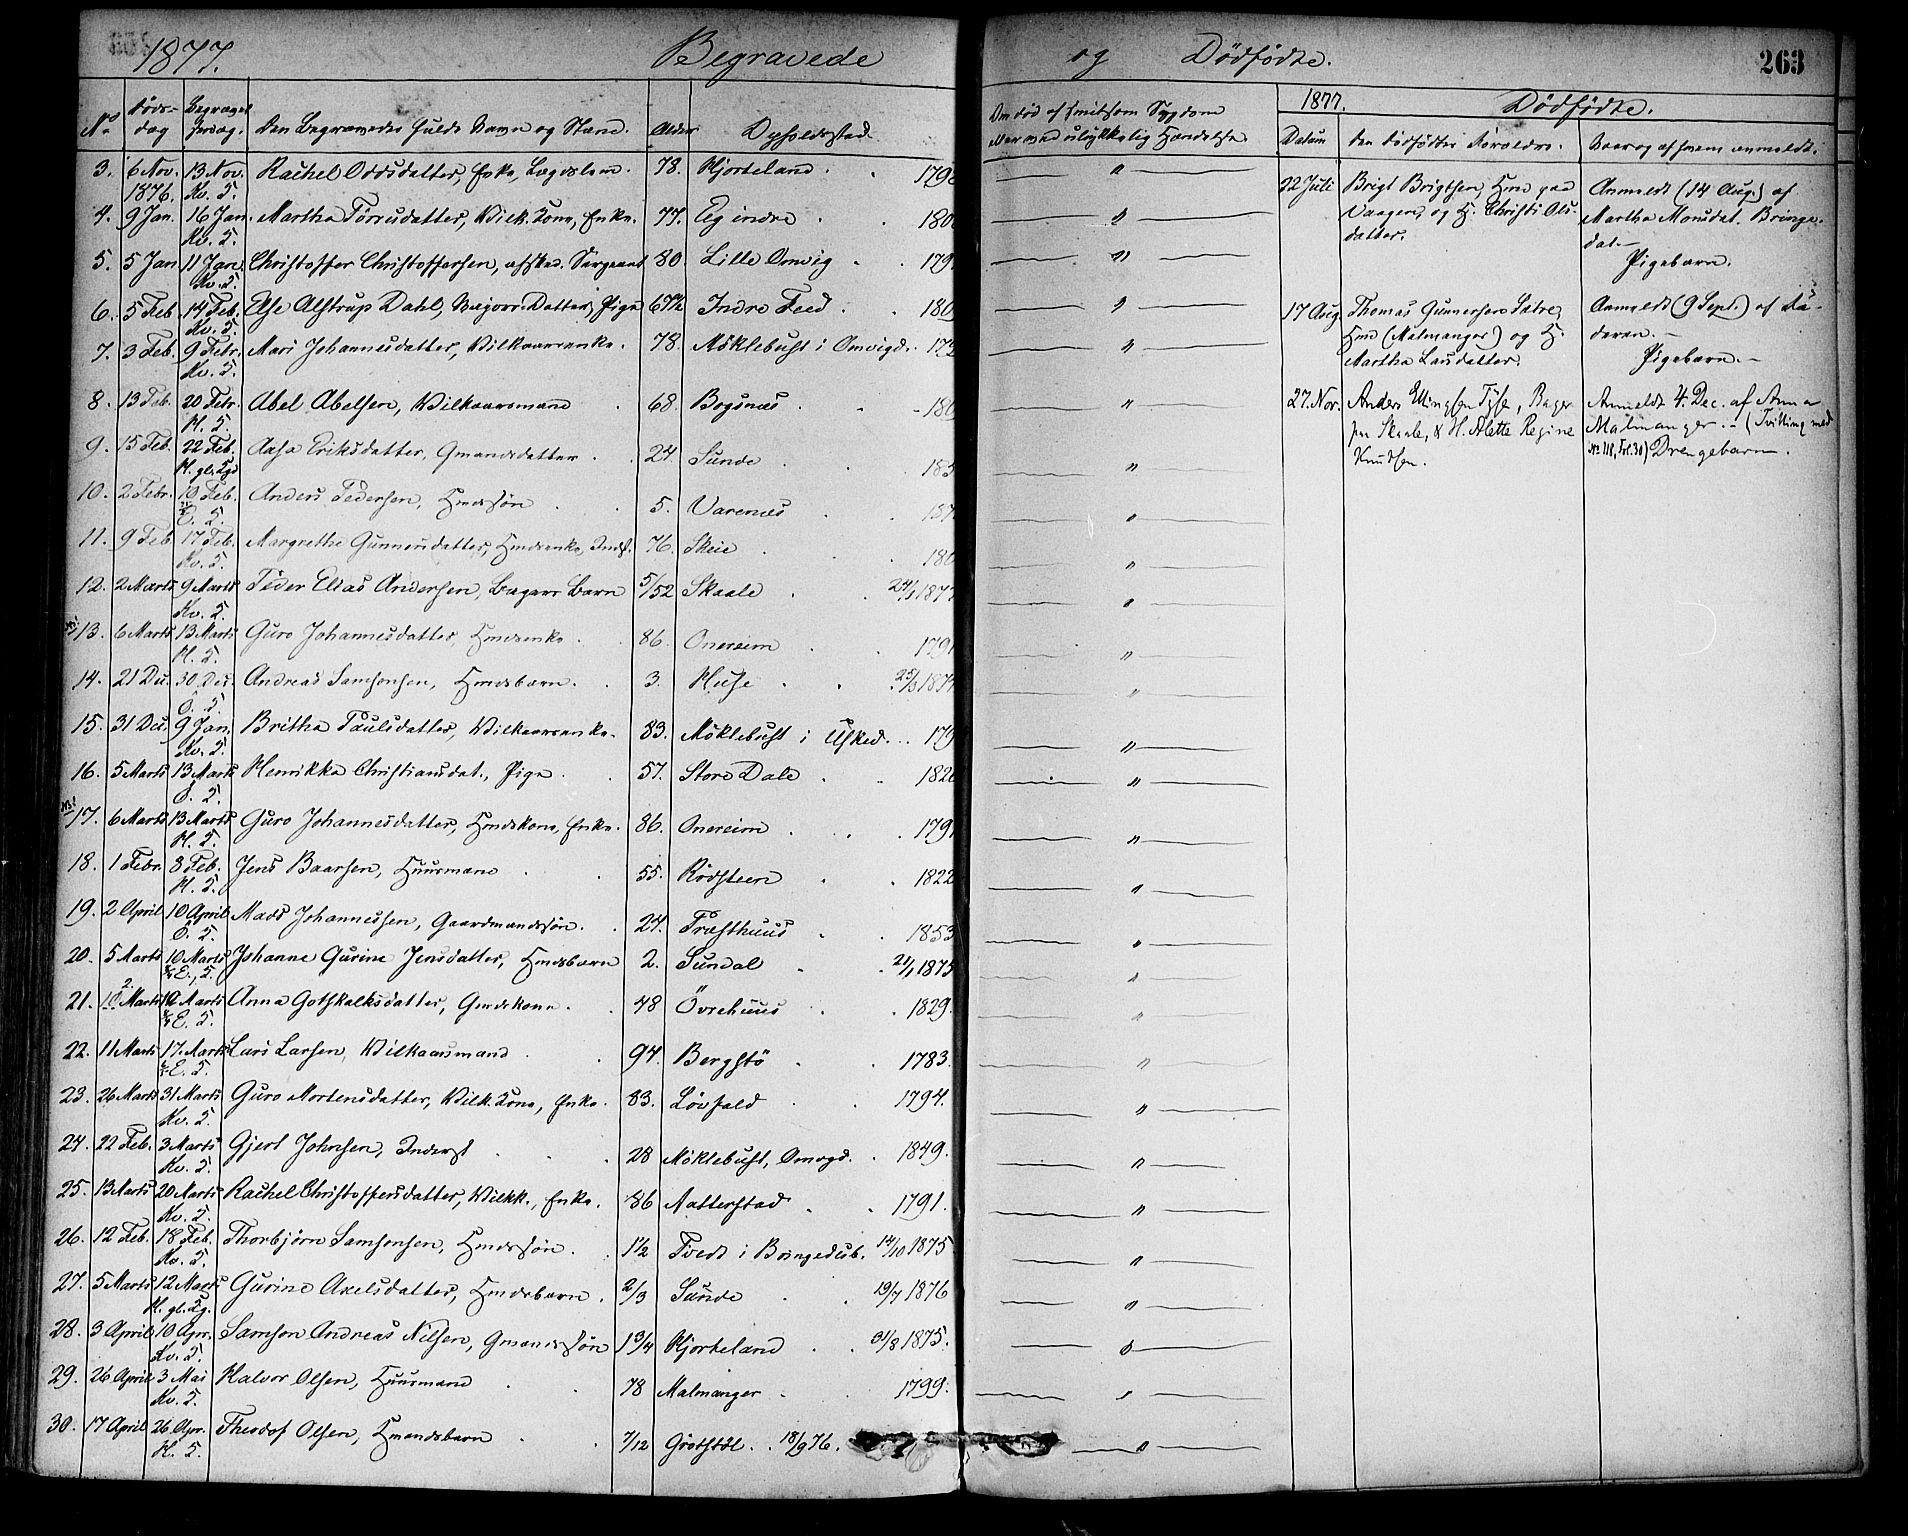 1877. Begravede og Dødfødte. 263
No Døds-dag Begravelsesdag. Den Begravedes fulde Navn og Stand. Alder Opholdssted.
Om død af smitsom Sygdom
eller ved ulykkelig Hændelse
1877. Dødfødte.
Datum Den dødfødtes Forældre. Naar og af hvem anmeldt.
3. 6 Nov. 13 Nov. Rachel Oddsdatter, Enke, Lægdslem. 78. Hjorteland.
1876. Kv. S.
4. 9 Jan. 16 Jan. Martha Tørresdatter, Vilk. Kone, Enke. 77. Eg indre
Kv. S.
5. 5 Jan 11 Jan. Christoffer Christoffersen, afsked. Sergeant 80. Lille Omvig
Kv. S.
6. 5 Feb. 14 Feb. Else Alstrup Dahl, Datter, Pige 67½ Indre Feed.
Kv. S.
7. 3 Feb. 9 Febr. Mari Johannesdatter, Vilkaarsenke. 78. Møklebust i Omvigd.
Kv. S.
8. 13 Feb. 20 Febr. Abel Abelsen, Vilkaarsmand 68. Bogsnæs.
H. S.
9. 15 Feb. 22 Feb. Aasa Eriksdatter, Gmandsdatter 24. Sunde
H. gl. Kgd
10. 2 Febr. 10 Feb. Anders Pedersen, Hmdssøn 5. Varenæs
E. S.
11. 9 Feb. 17 Feb. Margrethe Gunnersdatter, Hmdsenke, Inds. 76. Skeie
Kv. S.
12. 2 Marts 9 Marts Peder Elias Andersen, Bagers Barn 5/52 Skaale 24/1 1877
Kv. S.
NB! 13. 6 Marts 13 Marts Guro Johannesdatter, Hmdsenke 86. Onereim 1791
H. S.
14. 21 Dec. 30 Dec. Andreas Samsonsen, Hmdsbarn. 3. Huse
Ö. S.
15. 31 Dec. 9 Jan. Britha Paulsdatter, Vilkaarsenke. 83. Møklebust i Usked.
Kv. S.
16. 5 Marts 13 Marts Henrikka Christiansdat., Pige 57. Store Dale
Ö. S.
NB! 17. 6 Marts 13 Marts Guro Johannesdatter, Hmdskone, Enke. 86. Onereim 1791
H. S.
18. 1 Febr. 8 Feb. Jens Baarsen, Huusmand 55. Rødsteen 1822
H. S.
19. 2 April 10 April Mads Johannessen, Gaardmandssøn. 24. Træsthuus 1853
Ö. S.
20. 5 Marts 10 Marts Johanne Gurine Jensdatter, Hmdsbarn 2. Sundal 21/1 1875
E. S.
21. Marts Marts Anna Gotskalksdatter, Gmdskone. 48 Övrehuus 1829.
E. S.
22. 11 Marts 17. Marts Lars Larsen, Vilkaarsmand 94. Bergstø 1783.
E. S.
23. 26 Marts 31 Marts Guro Mortensdatter, Vilk. Kone, Enke. 83. Løvfald 1794.
Kv. S.
24. 22 Feb. 3 Marts Gjert Johnsen, Inderst 28 Møklebust, Omvgd. 1849.
Kv. S.
25. 13 Marts 20 Marts Rachel Christoffersdatter, Vilkk., Enke. 86 Natterstad 1791.
Kv. S.
26. 12 Feb. 18 Feb. Thorbjørn Samsonsen, Hmdssøn. 1½ Tvedt i Bringedub. 14/10 1875.
Kv. S.
27. 5 Marts 12 Marts Gurine Axelsdatter, Hmdsbarn. 2/3 Sunde 19/7 1876
H. gl. Kg.
28. 3 April 10 Apr. Samson Andreas Nilsen, Gmandssøn 1¾ Hjorteland 31/8 1875.
Kv. S.
29. 26 April 3 Mai Halvor Olsen, Huusmand 78 Malmanger 1799.
Kv. S.
30. 17 April 26 Apr. Theodor Olsen, Hmandsbarn 7/12 Grötstöl. 18/9 76.
H. S.
22 Juli Brigt Brigtsen, Hmd paa
Vaagen, og H. Christi Ols-
datter.
Anmeldt (14 Aug.) af
Martha Monsdat. Bringe-
dal.-
Pigebarn.
17 Aug. Thomas Gunnersen Sætre,
Hmd (Malmanger) og H.
Martha Larsdatter.
Anmeldt (9 Sept.) af Fa-
deren.-
Pigebarn.-
27. Nov. Anders Ellingsen Tyse, Bager
paa Skaale, & H. Alette Regine
Knudsen.
Anmeldt 4. Dec. af Anna
Malmanger.- (Tvilling med
No 118, Fol. 30) Drengebarn.